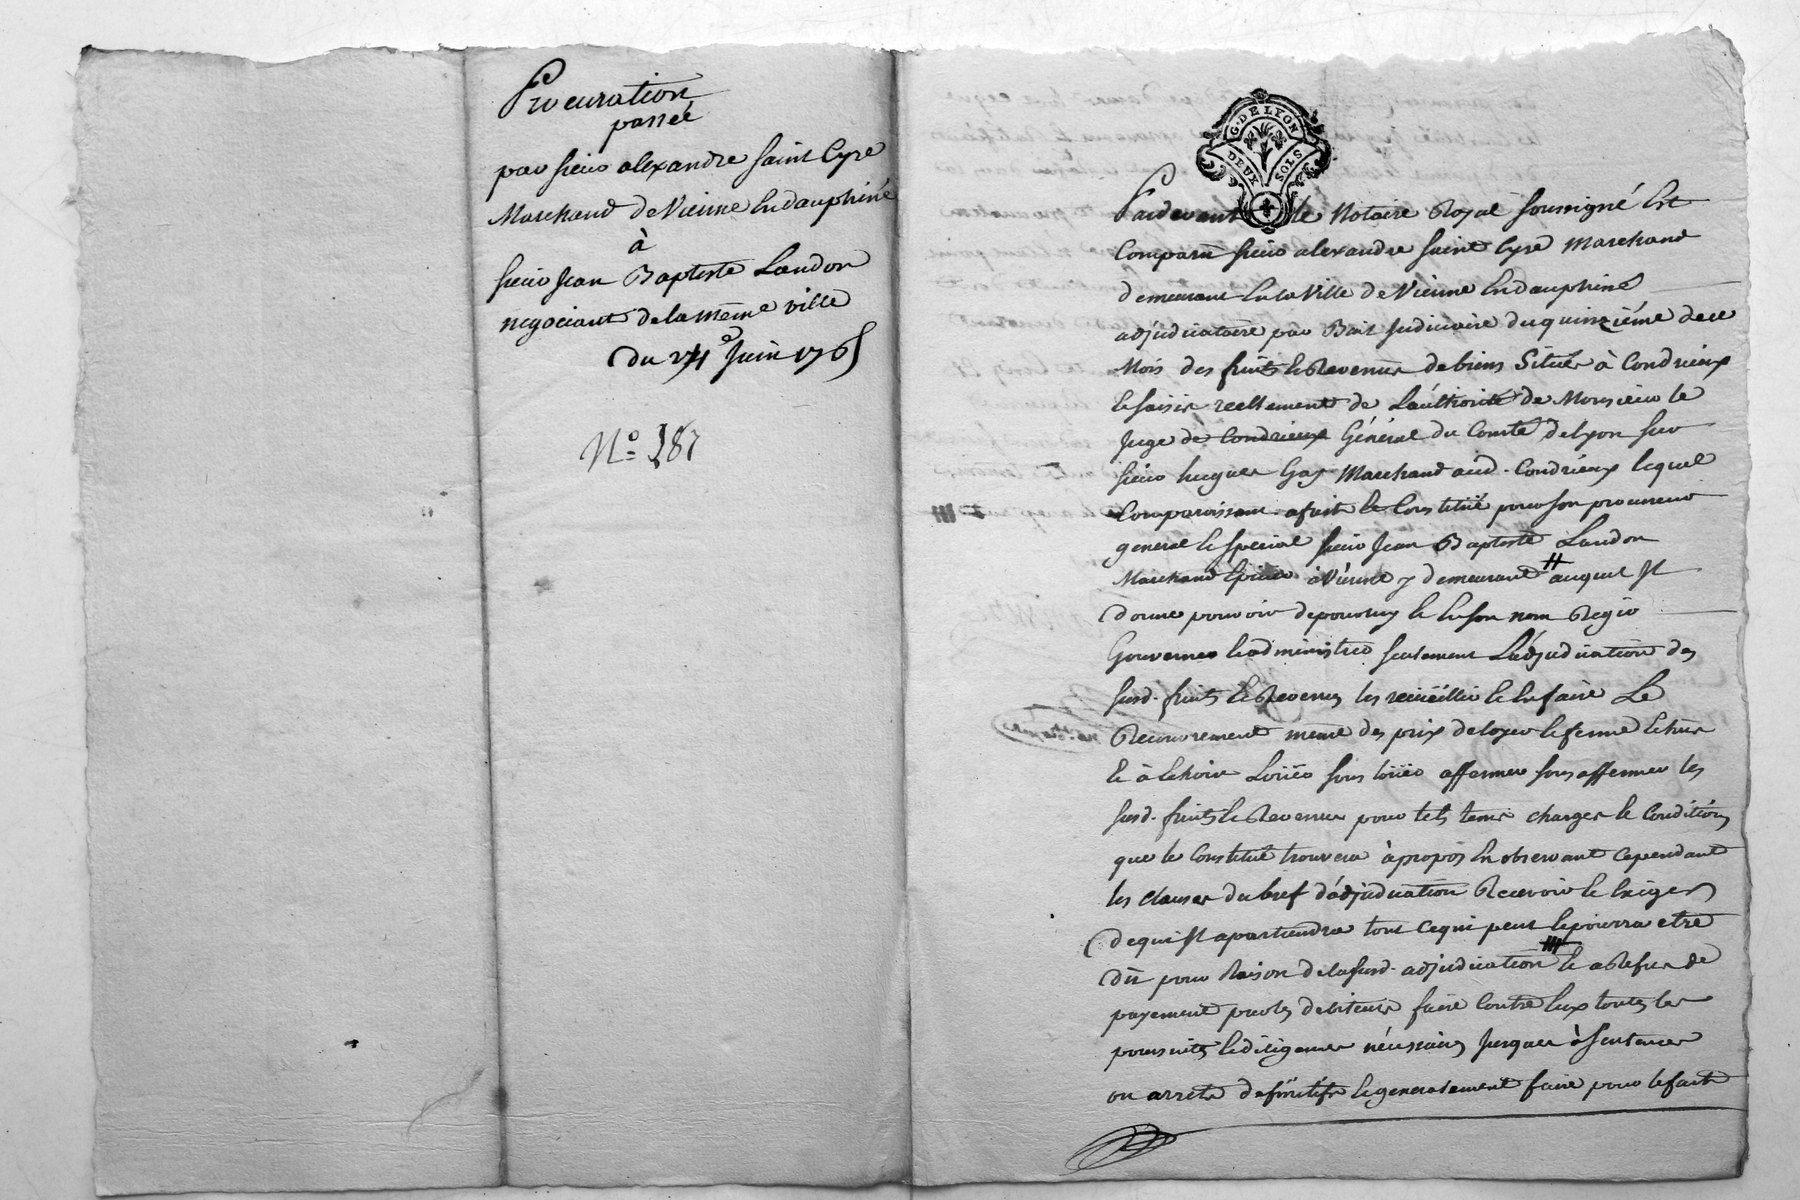 Procuration
passée
par sieur alexandre saint Cyre
Marchand de Vienne En dauphiné
à
sieur Jean Baptiste Landon
negociant de la même ville
du 24e Juin 1765
No. 187
G. DE LYON
DEUX SOLS
Pardevant le Notaire Royal soussigné Est
Comparu sieur alexandre saint Cyre Marchand
demeurant En la Ville de Vienne En dauphiné
adjudicataire par Bail Judiciaire du quinziéme de ce
Mois des fruits & Revenus de biens Situés à Condrieux
& saisis reellement de L'authorité de Monsieur le
Juge de Condrieux Général du Comté de Lyon sur
sieur hugues Gay Marchand aud. Condrieux lequel
Comparoissant a fait & Constitué pour son procureur
general & special sieur Jean Baptiste Landon
Marchand Epicier à Vienne y demeurant auquel Il
donne pouvoir de pour luy & En son nom Regir
Gouverner & administrer seulement L'adjudication des
susd. fruits & Revenus les recüeillir & En faire Le
Recouvrement même des prix de loyer & ferme Echus
& à Echoir Loüer sous loüer affermer sous affermer les
susd. fruits & Revenus pour tels tems charges & Conditions
que le Constitué trouvera à propos En observant cependant
les clauses du bref d'adjudication Recevoir & Exiger
de qui Il apartiendra tout ce qui peut & pourra etre
dû pour Raison de la susd. adjudication & a Refus de
payement par les debiteurs faire contre Eux toutes les
poursuites & diligences nécessaires Jusques à sentences
ou arrets definitifs & generalement faire pour le fait